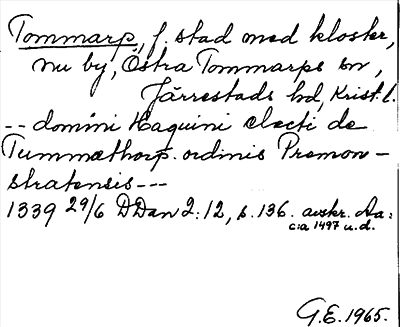 Tommarp, f. stad med kloster,
nu by, Östra Tommarps sn,
Järrestads hd, Krist. l.
-- domini Haquini electi de
Tummæthorp. ordinis Premon-
stratensis---
1339 29/6 DDan 2:12, s. 136. avskr. Aa:
c:a 1497 u.d.
G.E. 1965.